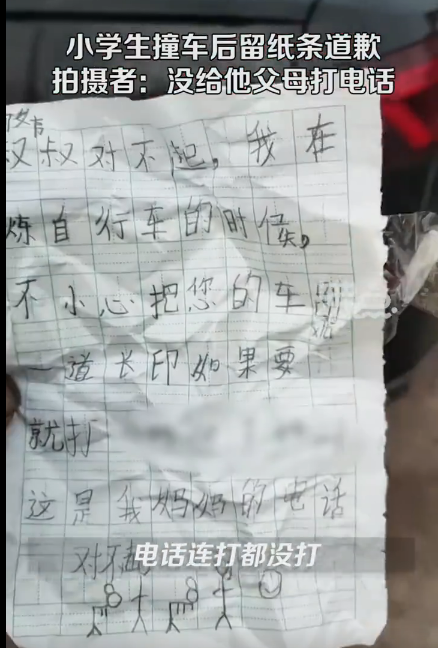 小学生撞车后留纸条道歉
拍摄者：没给他父母打电话
叔叔对不起，我在
炼自行车的时候，
不小心把您的车
一道长印如果要
就打
这是我妈妈的电话
对不起
电话连打都没打